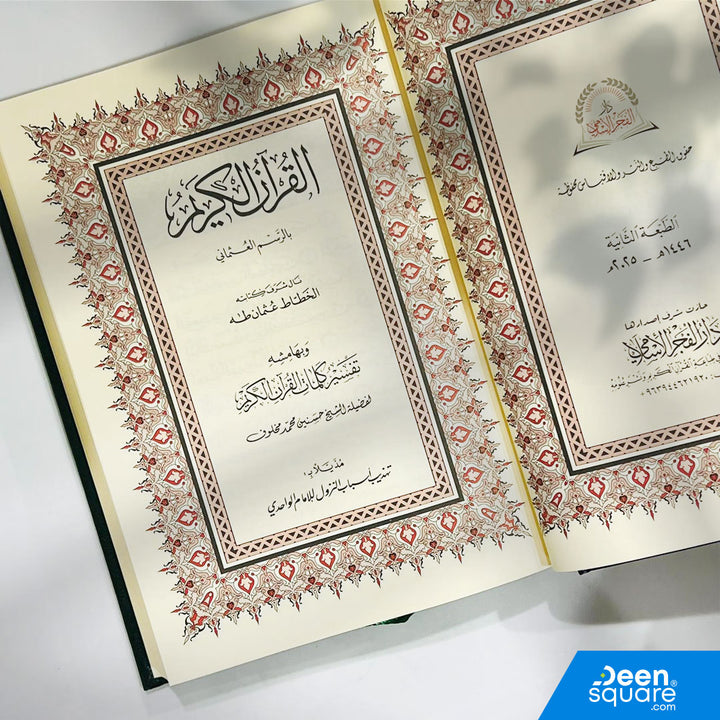 القرآن الكريم
بالرسم العثماني
نال شرف كتابته
الخطاط عثمان طه
وبهامشه
تفسير كلمات القرآن الكريم
لفضيلة الشيخ حسنين محمد مخلوف
مذيلاً بـ:
تهذيب أسباب النزول للإمام الواحدي
دار
الفجر الإسلامي
حقوق الطبع والنشر والاقتباس محفوظة
الطبعة الثانية
١٤٤٦هـ - ٢٠٢٥م
حازت شرف إصدارها
دار الفجر الإسلامي
لطباعة القرآن الكريم ونشر علومه
Deen
square®
.com